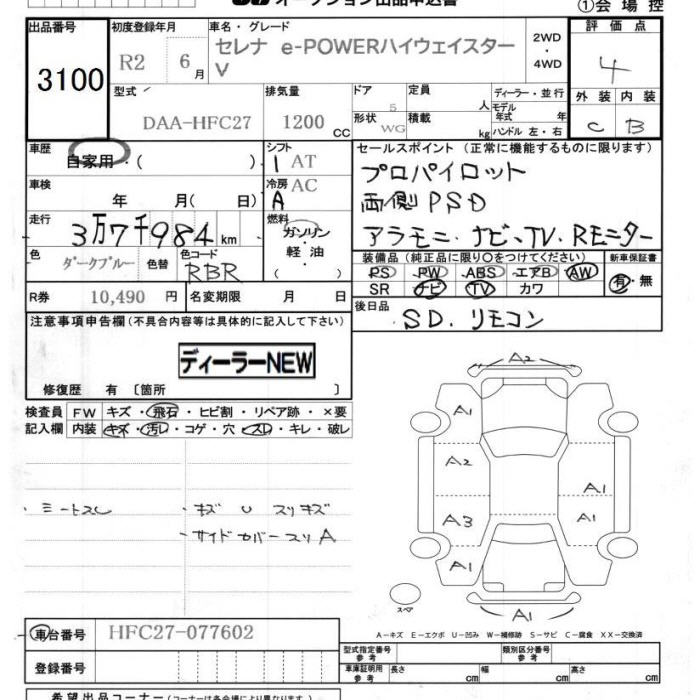 オークション出品申込書
①会場控
出品番号 初度登録年月 車名・グレード 2WD・4WD 評価点
3100 R2 6月 セレナ e-POWERハイウェイスターV 4
型式 排気量 ドア 定員 ディーラー・並行 外装 内装
DAA-HFC27 1200 CC 5 人 モデル年式 年式 C B
形状 WG 積載 kg ハンドル 左・右
車歴 シフト セールスポイント (正常に機能するものに限ります)
自家用・( ) I AT プロパイロット
車検 冷房 AC 両側PSD
年 月( 日) A
走行 燃料 アラモニ・ナビ・TV・Rモニター
3万7千984 km ガソリン・軽油 ( )
色 ダークブルー 色替 色コード RBR 装備品 (純正品に限り○をつけてください) 新車保証書
PS PW ABS エアB AW 有・無
SR ナビ TV カワ
R券 10,490 円 名変期限 月 日 後日品
SD. リモコン
注意事項申告欄 (不具合内容等は具体的に記入して下さい)
ディーラーNEW
修復歴 有 〔箇所 〕
検査員 FW キズ・飛石・ヒビ割・リペア跡・×要
記入欄 内装 キズ・汚レ・コゲ・穴・スレ・キレ・破レ
A2
A1
A2
A1
A3 A1
A1
A1
・シートスレ ・キズ U スリキズ
・サイドカバースリA
スペア
A-キズ E-エクボ U-凹み W-補修跡 S-サビ C-腐食 XX-交換済
車台番号 HFC27-077602
登録番号
型式指定番号 参考 類別区分番号 参考
車庫証明用 参考 長さ cm 幅 cm 高さ cm
希望出品コーナー (コーナーは各会場により異なります。)